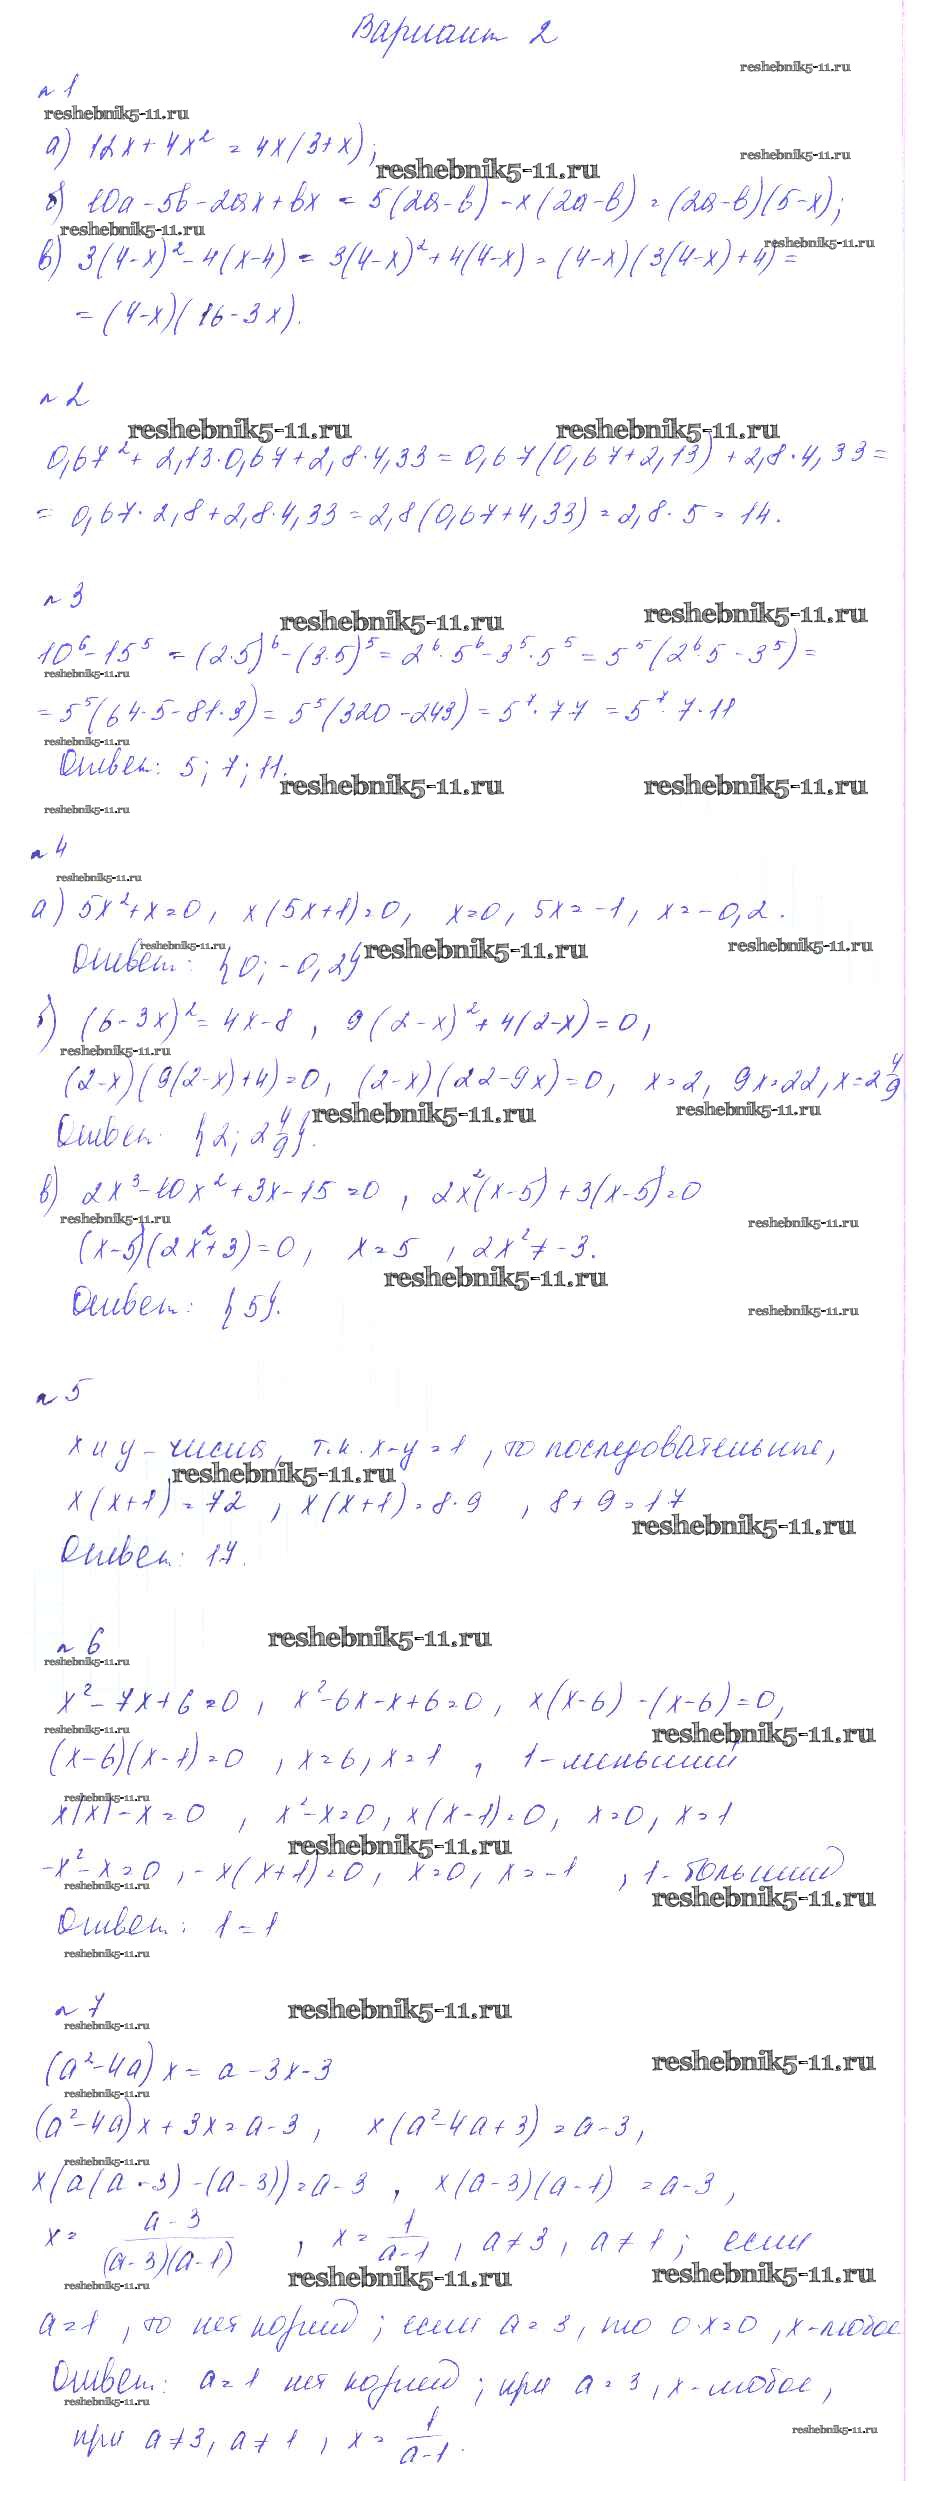 Вариант 2
reshebnik5-11.ru
№1
reshebnik5-11.ru
а) 12x + 4x² = 4x(3+x);
reshebnik5-11.ru
reshebnik5-11.ru
б) 10a - 5b - 2ax + bx = 5(2a-b) - x(2a-b) = (2a-b)(5-x);
reshebnik5-11.ru
reshebnik5-11.ru
в) 3(4-x)² - 4(x-4) = 3(4-x)² + 4(4-x) = (4-x)(3(4-x)+4) =
= (4-x)(16-3x).
№2
reshebnik5-11.ru reshebnik5-11.ru
0,67² + 2,13·0,67 + 2,8·4,33 = 0,67(0,67+2,13) + 2,8·4,33 =
= 0,67·2,8 + 2,8·4,33 = 2,8(0,67+4,33) = 2,8·5 = 14.
№3
reshebnik5-11.ru reshebnik5-11.ru
10⁶ - 15⁵ = (2·5)⁶ - (3·5)⁵ = 2⁶·5⁶ - 3⁵·5⁵ = 5⁵(2⁶·5 - 3⁵) =
reshebnik5-11.ru
= 5⁵(64·5 - 81·3) = 5⁵(320 - 243) = 5⁷·77 = 5⁷·7·11
reshebnik5-11.ru
Ответ: 5; 7; 11.
reshebnik5-11.ru reshebnik5-11.ru
reshebnik5-11.ru
№4
reshebnik5-11.ru
а) 5x² + x = 0, x(5x+1) = 0, x=0, 5x = -1, x = -0,2.
reshebnik5-11.ru reshebnik5-11.ru reshebnik5-11.ru
Ответ: {0; -0,2}
б) (6-3x)² = 4x-8, 9(2-x)² + 4(2-x) = 0,
reshebnik5-11.ru
(2-x)(9(2-x)+4) = 0, (2-x)(22-9x) = 0, x=2, 9x=22, x=2 4/9
reshebnik5-11.ru reshebnik5-11.ru
Ответ: {2; 2 4/9}.
в) 2x³ - 10x² + 3x - 15 = 0, 2x²(x-5) + 3(x-5) = 0
reshebnik5-11.ru reshebnik5-11.ru
(x-5)(2x²+3) = 0, x = 5, 2x² ≠ -3.
reshebnik5-11.ru
Ответ: {5}.
reshebnik5-11.ru
№5
x и y - числа, т.к. x-y=1, то последовательные,
reshebnik5-11.ru
x(x+1) = 72, x(x+1) = 8·9, 8+9=17
reshebnik5-11.ru
Ответ: 17.
№6
reshebnik5-11.ru
reshebnik5-11.ru
x² - 7x + 6 = 0, x² - 6x - x + 6 = 0, x(x-6) - (x-6) = 0,
reshebnik5-11.ru reshebnik5-11.ru
(x-6)(x-1) = 0, x=6, x=1, 1-меньший
reshebnik5-11.ru
x|x| - x = 0, x² - x = 0, x(x-1) = 0, x=0, x=1
reshebnik5-11.ru
-x² - x = 0, -x(x+1) = 0, x=0, x=-1, 1-больший
reshebnik5-11.ru reshebnik5-11.ru
Ответ: 1 = 1
reshebnik5-11.ru
№7
reshebnik5-11.ru
reshebnik5-11.ru
(a²-4a)x = a - 3x - 3
reshebnik5-11.ru
reshebnik5-11.ru
(a²-4a)x + 3x = a-3, x(a²-4a+3) = a-3,
reshebnik5-11.ru
x(a(a-3) - (a-3)) = a-3, x(a-3)(a-1) = a-3,
x = (a-3)/((a-3)(a-1)), x = 1/(a-1), a≠3, a≠1; если
reshebnik5-11.ru reshebnik5-11.ru reshebnik5-11.ru
a=1, то нет корней; если a=3, то 0·x=0, x-любое
Ответ: a=1 нет корней; при a=3, x-любое,
reshebnik5-11.ru
при a≠3, a≠1, x = 1/(a-1).
reshebnik5-11.ru